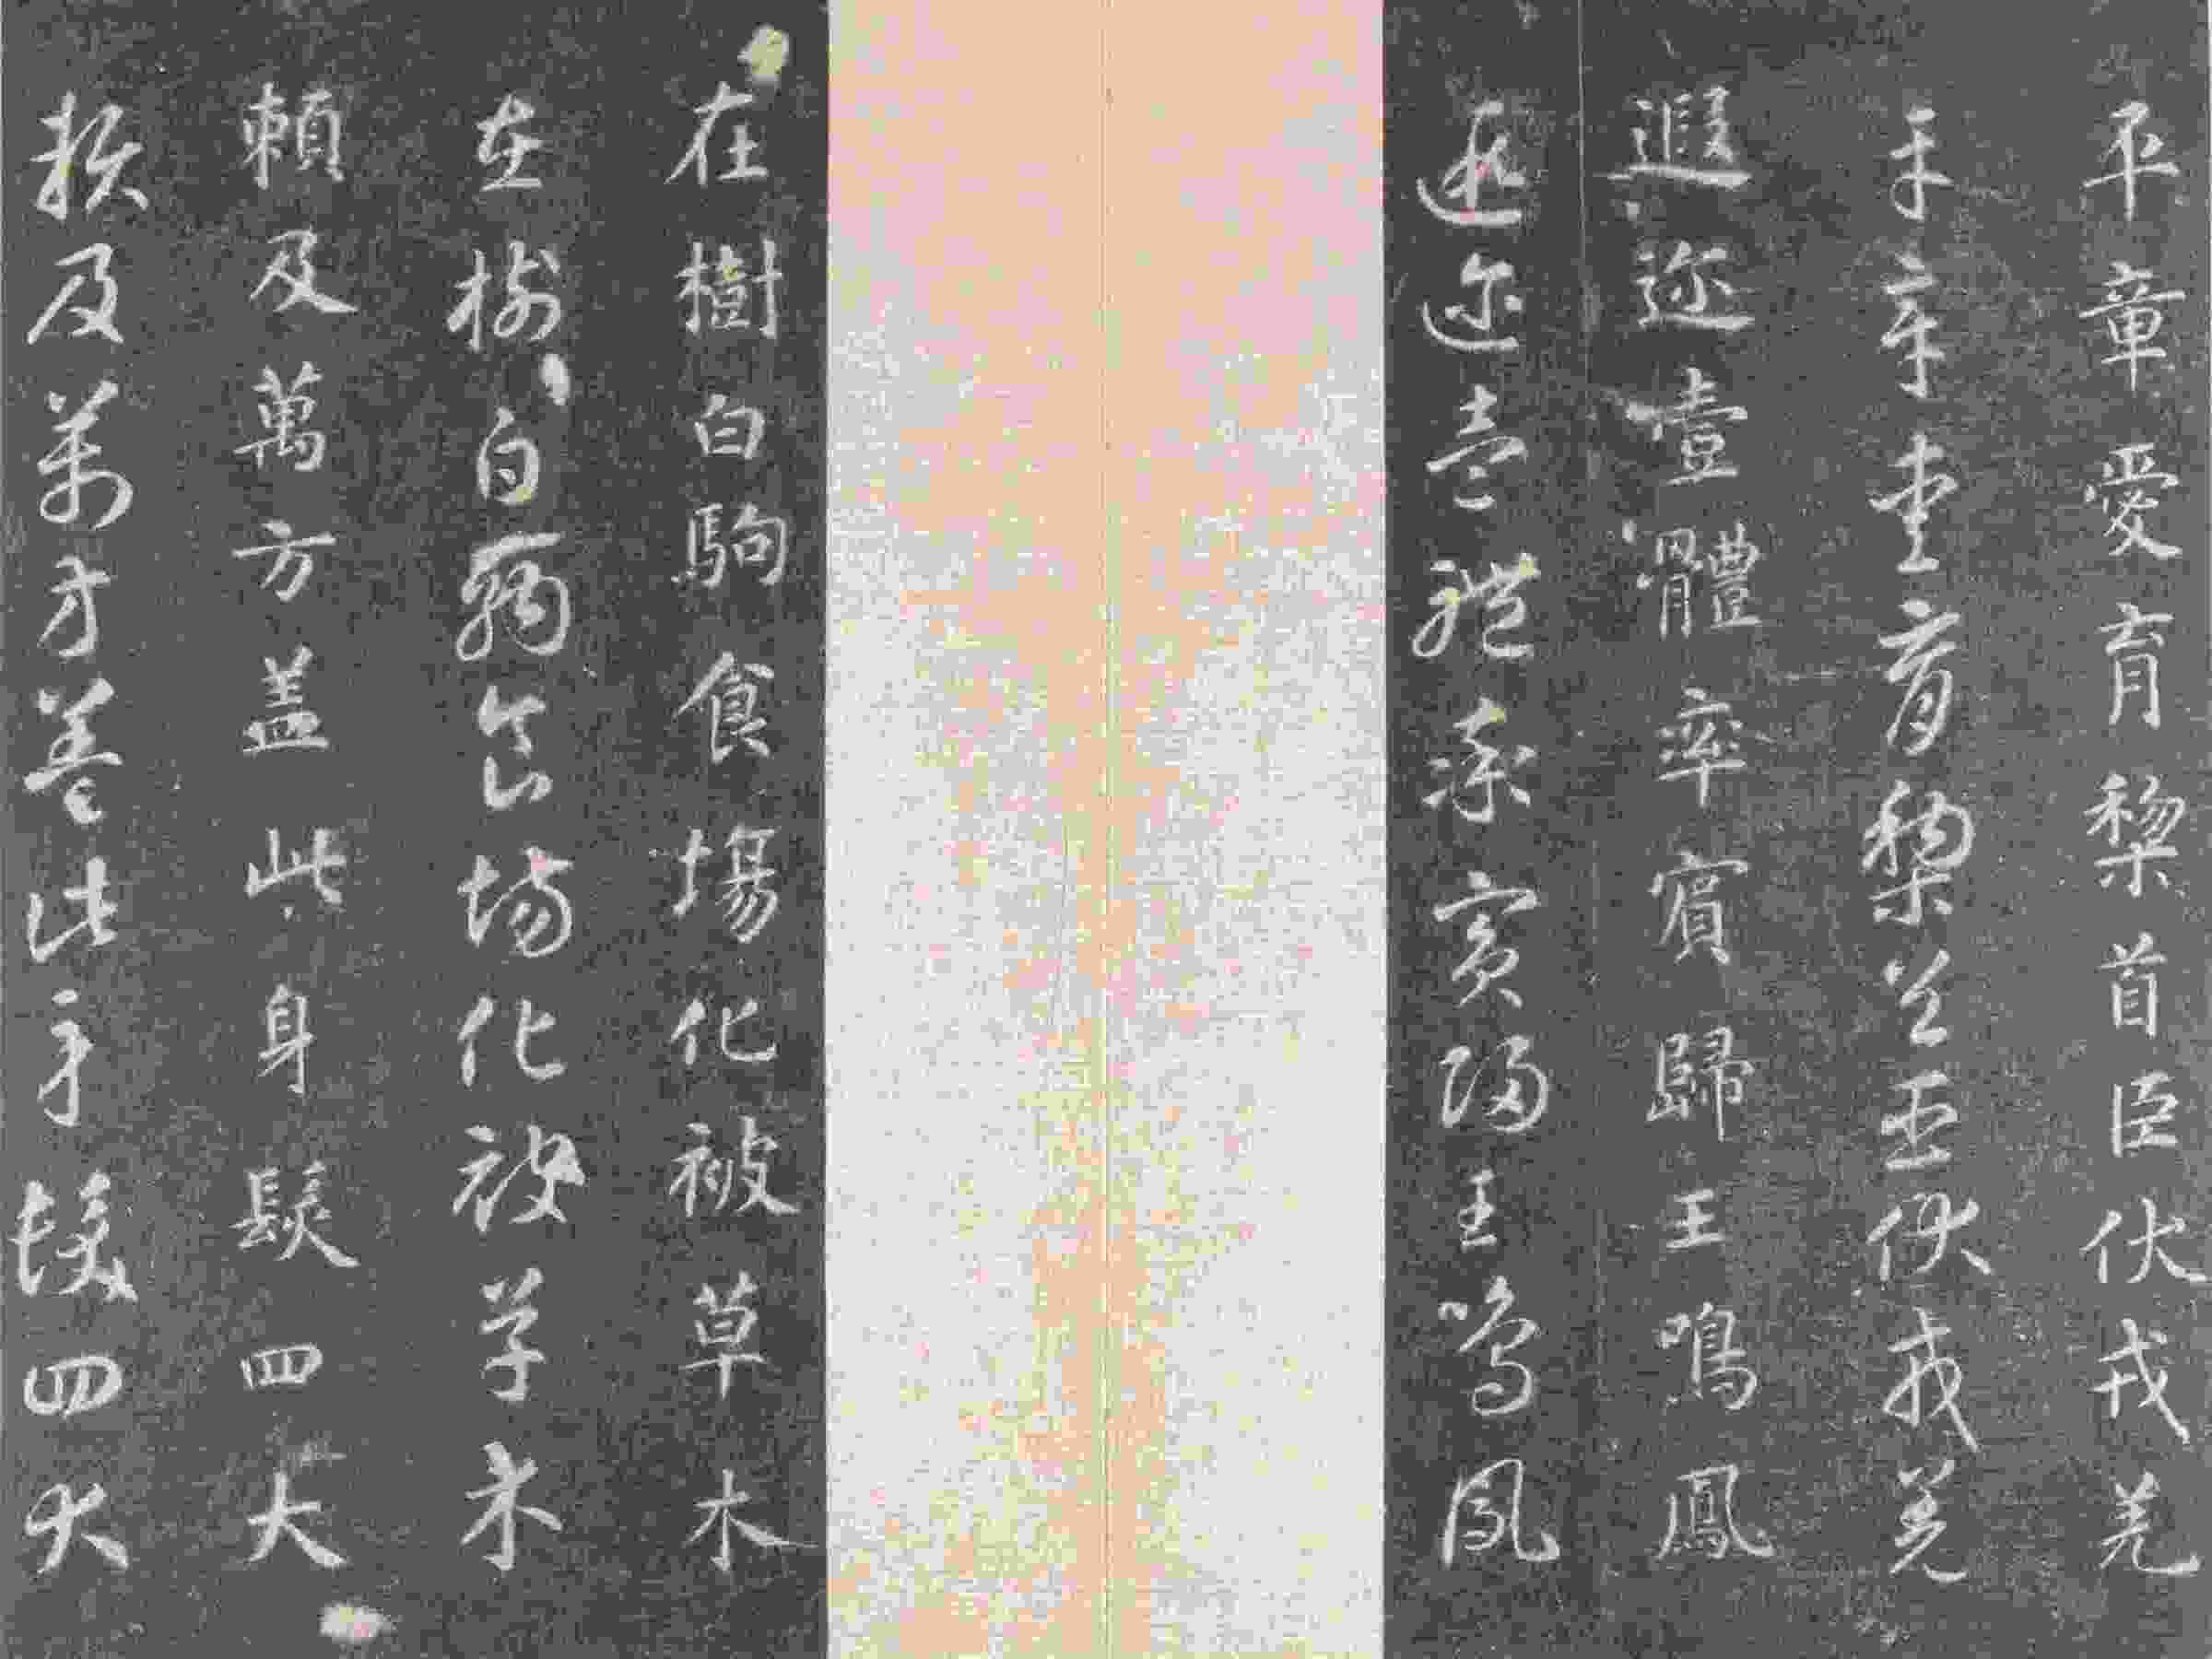 平章愛育黎首臣伏戎羌
平章愛育黎首臣伏戎羌
遐迩壹體率賓歸王鳴鳳
遐迩壹體率賓歸王鳴鳳
在樹白駒食場化被草木
在樹白駒食場化被草木
賴及萬方蓋此身髮四大
賴及萬方蓋此身髮四大